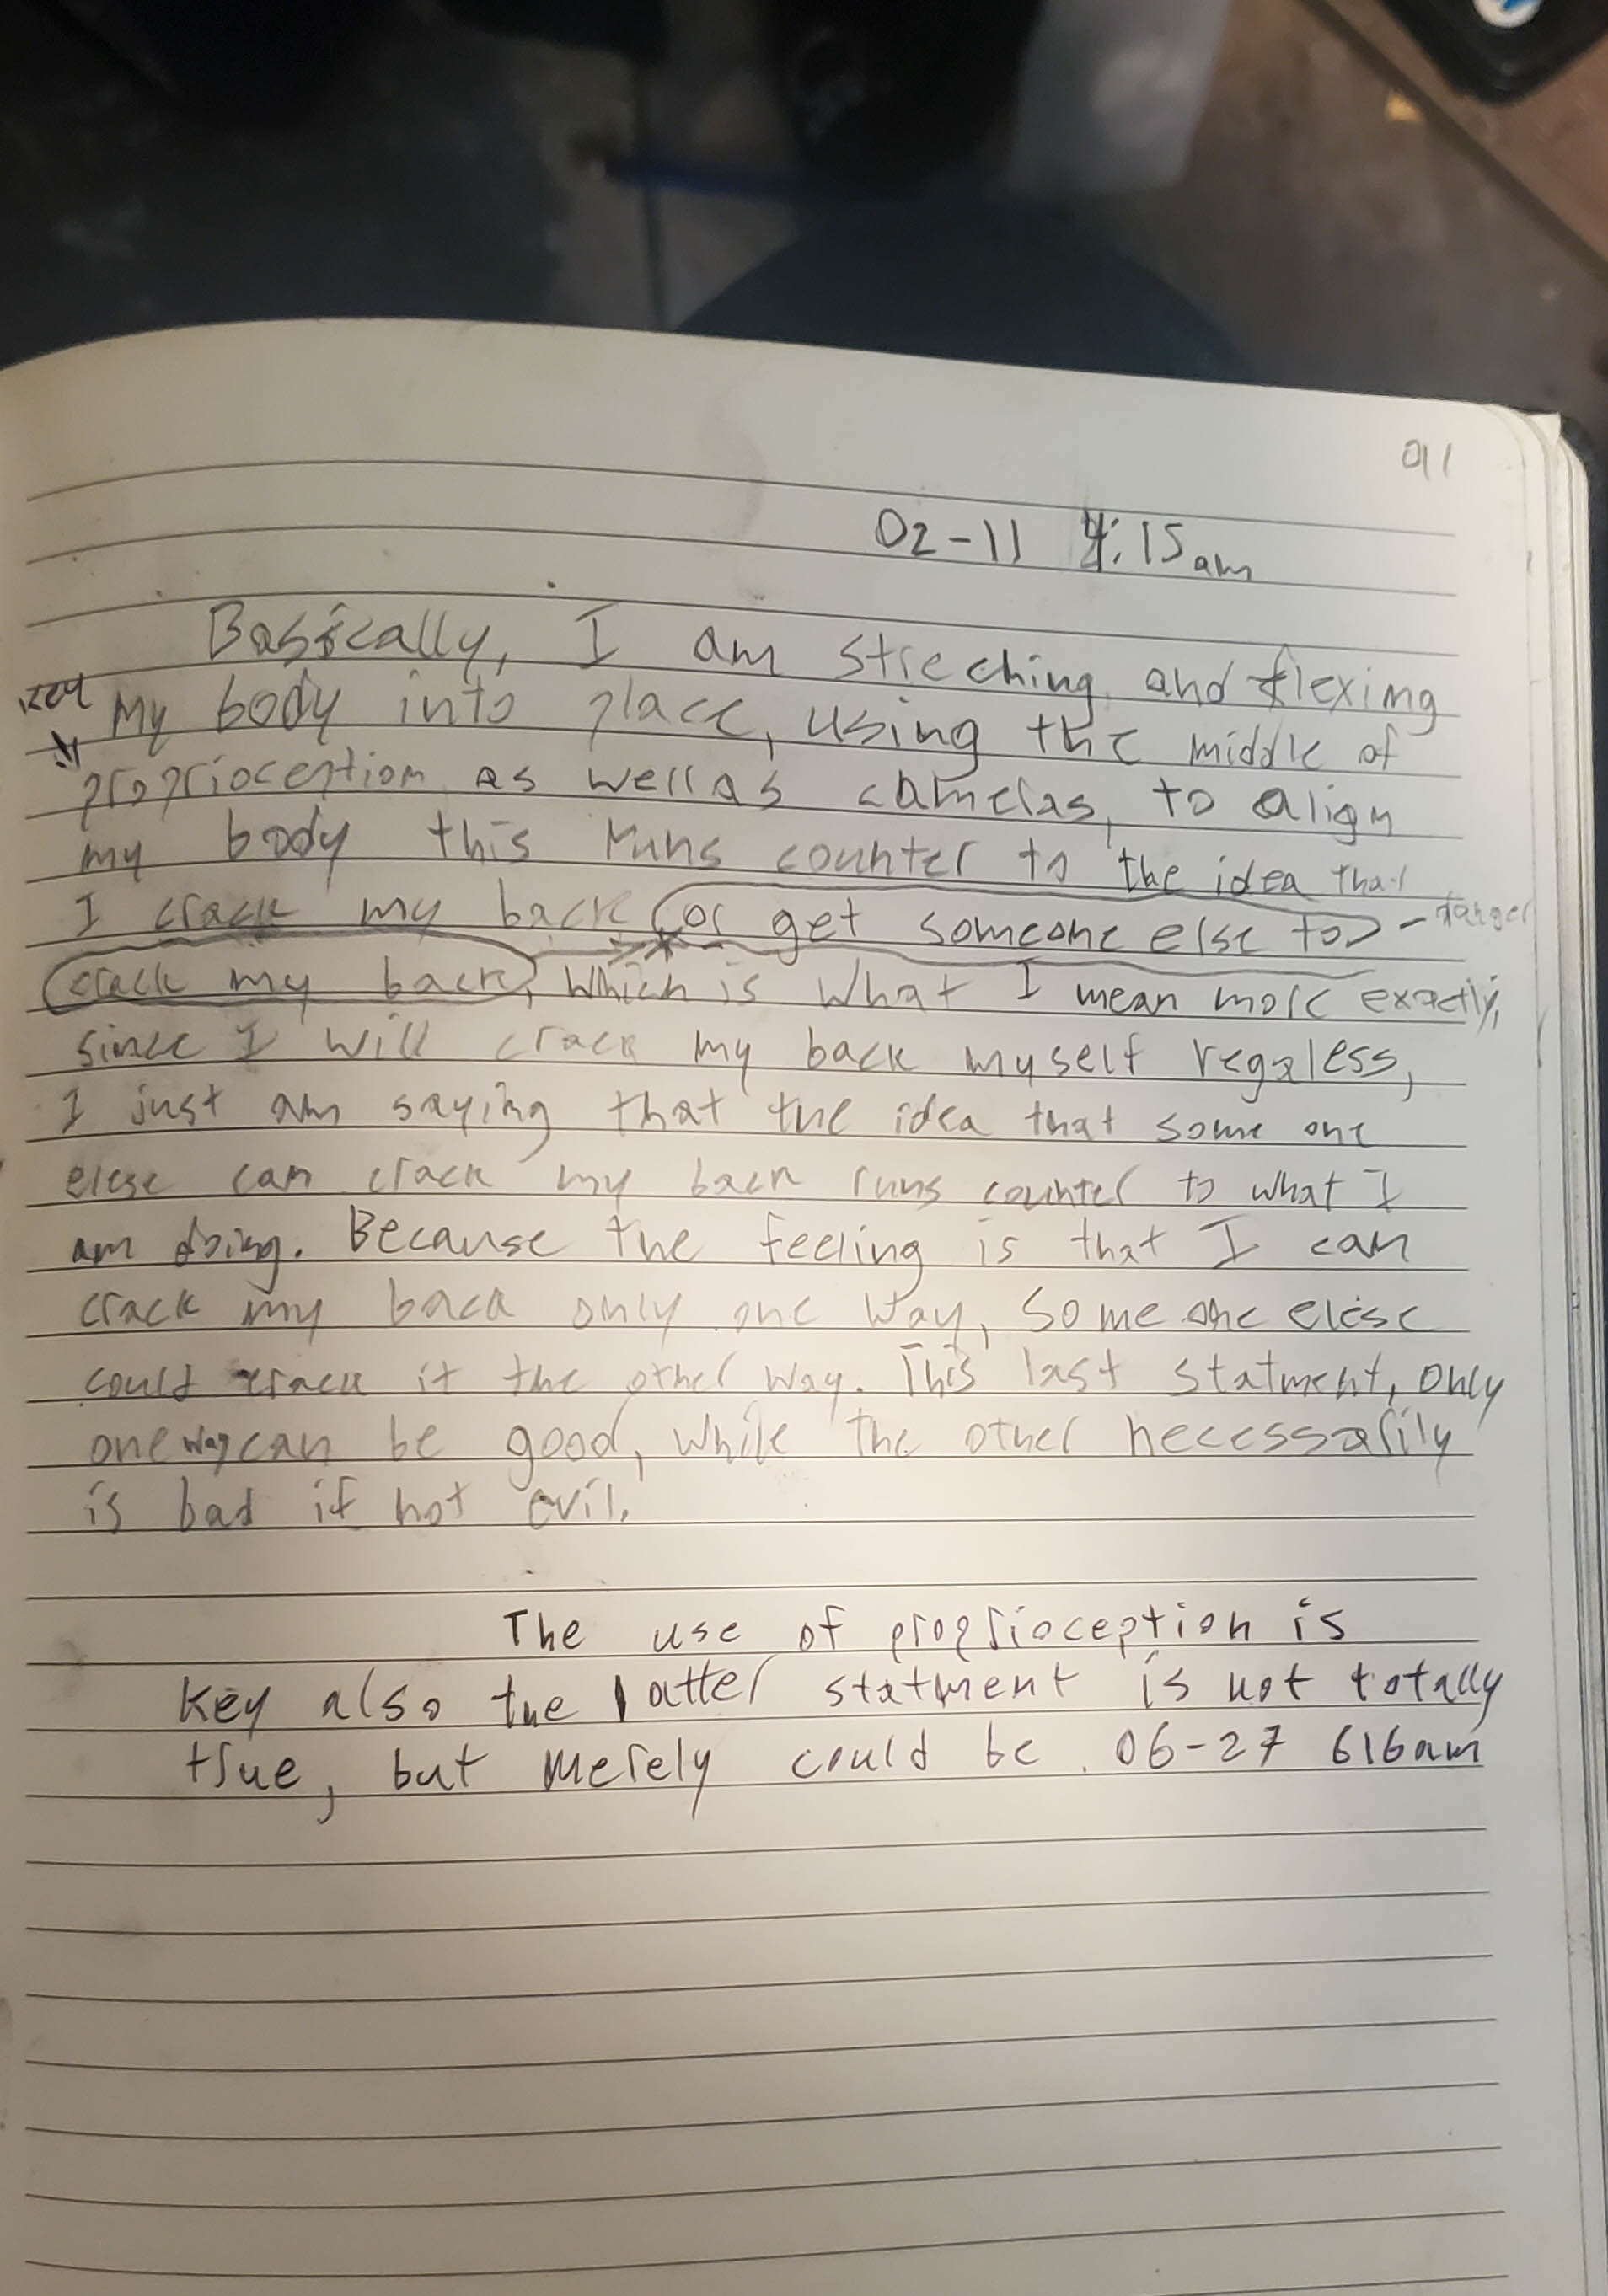 91
02-11 4:15am
Basically, I am streching and flexing
Key my body into place, using the middle of
proprioception as well as cameras, to align
my body this runs counter to the idea that
I crack my back or get someone else to - danger
crack my back, which is what I mean more exactly,
since I will crack my back myself regaless,
I just am saying that the idea that some one
elese can crack my back runs counter to what I
am doing. Because the feeling is that I can
crack my back only one way, some one elese
could crack it the other way. This last statment, only
one way can be good, while the other necessarily
is bad if not evil.
The use of proprioception is
key also the latter statment is not totally
true, but merely could be. 06-27 616am